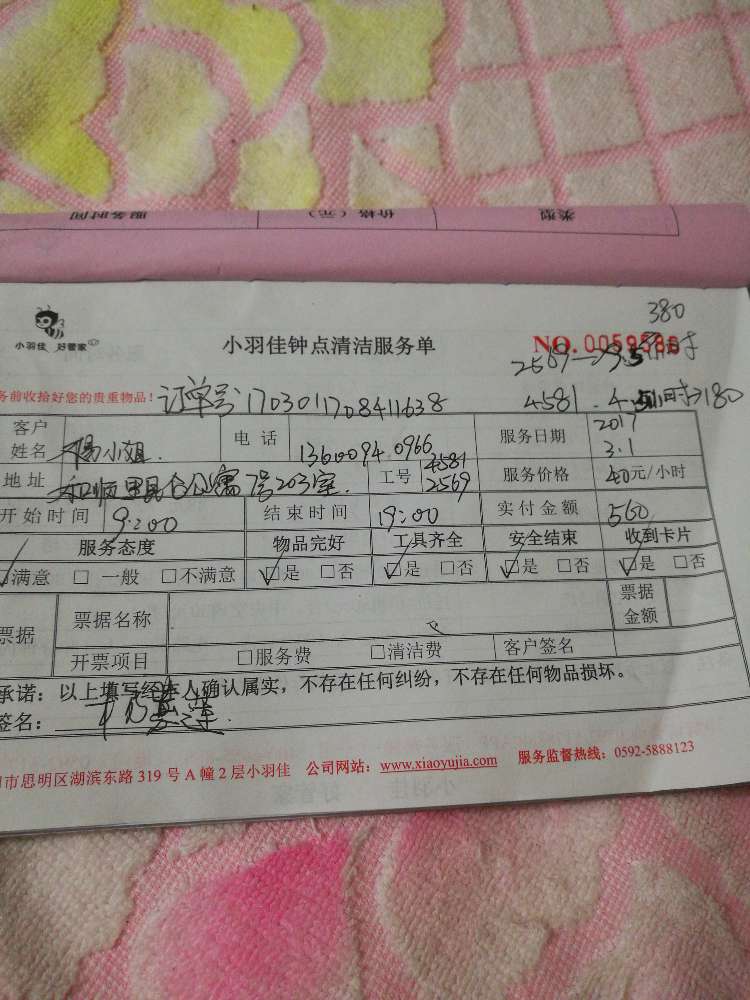 服务时间 价格（元） 类型
小羽佳 好管家
小羽佳钟点清洁服务单
380
NO. 0059586
2569
务前收拾好您的贵重物品！ 订单号 1703011708411638
4581 180
客户姓名 杨小姐. 电话 13600940966 服务日期 2017 3.1
地址 7号203室. 工号 4581 2569 服务价格 40元/小时
开始时间 9:00 结束时间 19:00 实付金额 560
服务态度 物品完好 工具齐全 安全结束 收到卡片
满意 □ 一般 □不满意 ☑是 □否 ☑是 □否 ☑是 □否 ☑是 □否
票据 票据名称 票据金额
开票项目 □服务费 □清洁费 客户签名
承诺：以上填写经本人确认属实，不存在任何纠纷，不存在任何物品损坏。
签名：
市思明区湖滨东路 319 号 A 幢 2 层小羽佳 公司网站：www.xiaoyujia.com 服务监督热线：0592-5888123